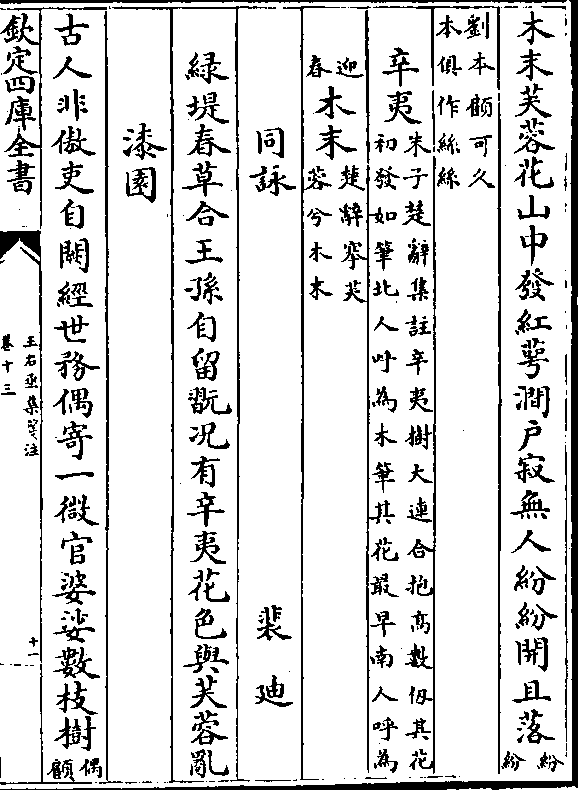 木末芙蓉花山中發紅萼澗戶寂無人紛紛開且落紛紛
劉本顧可久
本俱作絲絲
辛夷朱子楚辭集註辛夷樹大連合抱高數仞其花
初發如筆北人呼為木筆其花最早南人呼為
迎春
木末楚辭搴芙
蓉兮木末
同詠 裴廸
綠堤春草合王孫自留翫况有辛夷花色與芙蓉亂
漆園
古人非傲吏自闕經世務偶寄一微官婆娑數枝樹偶顧
欽定四庫全書
王右丞集箋注
卷十三
十一